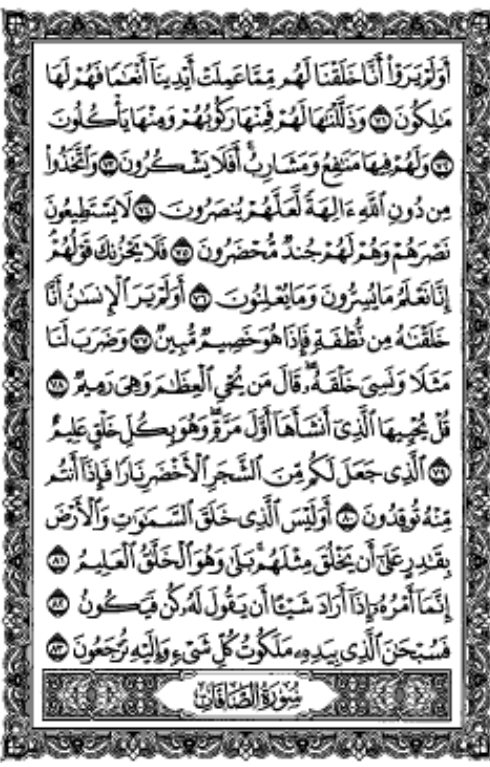 أَوَلَمْ يَرَوْاْ أَنَّا خَلَقْنَا لَهُم مِّمَّا عَمِلَتْ أَيْدِينَآ أَنْعَٰمًا فَهُمْ لَهَا
مَٰلِكُونَ ٧١ وَذَلَّلْنَٰهَا لَهُمْ فَمِنْهَا رَكُوبُهُمْ وَمِنْهَا يَأْكُلُونَ
٧٢ وَلَهُمْ فِيهَا مَنَٰفِعُ وَمَشَارِبُ ۖ أَفَلَا يَشْكُرُونَ ٧٣ وَٱتَّخَذُواْ
مِن دُونِ ٱللَّهِ ءَالِهَةً لَّعَلَّهُمْ يُنصَرُونَ ٧٤ لَا يَسْتَطِيعُونَ
نَصْرَهُمْ وَهُمْ لَهُمْ جُندٌ مُّحْضَرُونَ ٧٥ فَلَا يَحْزُنكَ قَوْلُهُمْ ۘ
إِنَّا نَعْلَمُ مَا يُسِرُّونَ وَمَا يُعْلِنُونَ ٧٦ أَوَلَمْ يَرَ ٱلْإِنسَٰنُ أَنَّا
خَلَقْنَٰهُ مِن نُّطْفَةٍ فَإِذَا هُوَ خَصِيمٌ مُّبِينٌ ٧٧ وَضَرَبَ لَنَا
مَثَلًا وَنَسِيَ خَلْقَهُۥ ۖ قَالَ مَن يُحْيِ ٱلْعِظَٰمَ وَهِيَ رَمِيمٌ ٧٨
قُلْ يُحْيِيهَا ٱلَّذِىٓ أَنشَأَهَآ أَوَّلَ مَرَّةٍ ۖ وَهُوَ بِكُلِّ خَلْقٍ عَلِيمٌ
٧٩ ٱلَّذِى جَعَلَ لَكُم مِّنَ ٱلشَّجَرِ ٱلْأَخْضَرِ نَارًا فَإِذَآ أَنتُم
مِّنْهُ تُوقِدُونَ ٨٠ أَوَلَيْسَ ٱلَّذِى خَلَقَ ٱلسَّمَٰوَٰتِ وَٱلْأَرْضَ
بِقَٰدِرٍ عَلَىٰٓ أَن يَخْلُقَ مِثْلَهُم ۚ بَلَىٰ وَهُوَ ٱلْخَلَّٰقُ ٱلْعَلِيمُ ٨١
إِنَّمَآ أَمْرُهُۥٓ إِذَآ أَرَادَ شَيْـًٔا أَن يَقُولَ لَهُۥ كُن فَيَكُونُ ٨٢
فَسُبْحَٰنَ ٱلَّذِى بِيَدِهِۦ مَلَكُوتُ كُلِّ شَىْءٍ وَإِلَيْهِ تُرْجَعُونَ ٨٣
سُورَةُ الصَّافَّات